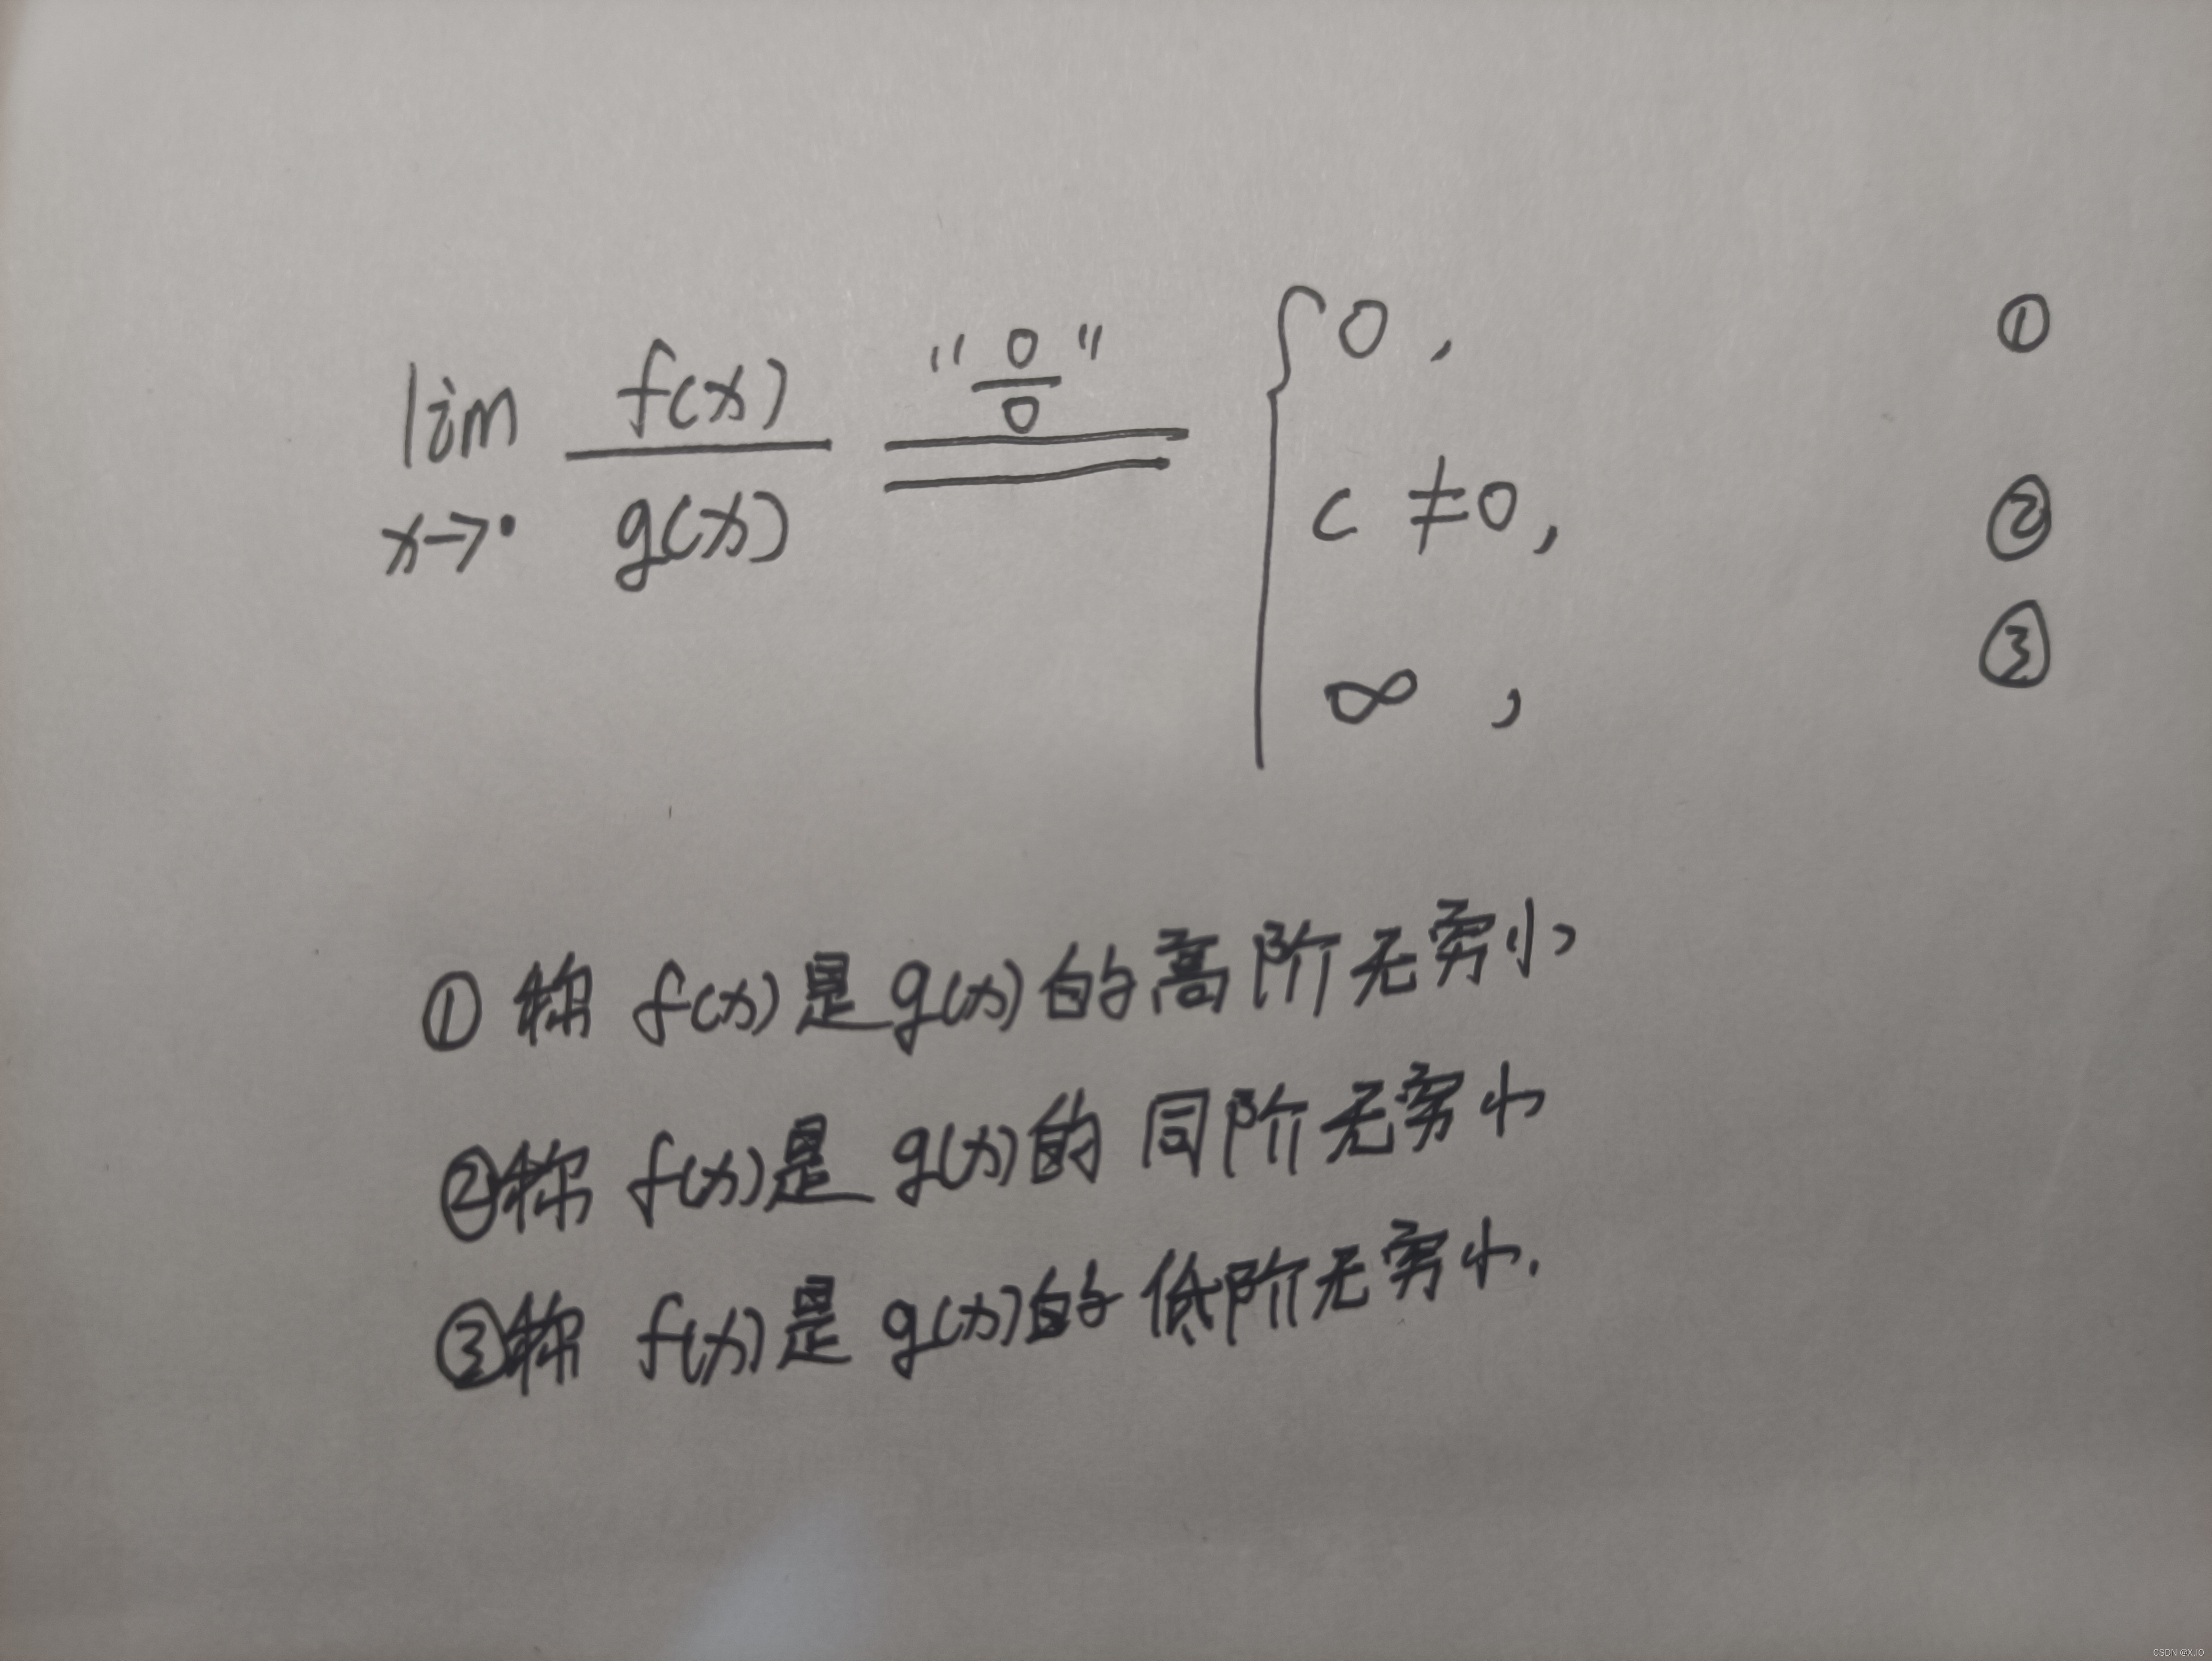 lim x→• f(x)/g(x) "0/0" = { 0, ①
c ≠0, ②
∞, ③
① 称 f(x) 是 g(x) 的高阶无穷小
② 称 f(x) 是 g(x) 的 同阶无穷小
③ 称 f(x) 是 g(x) 的 低阶无穷小.
CSDN @X.IO